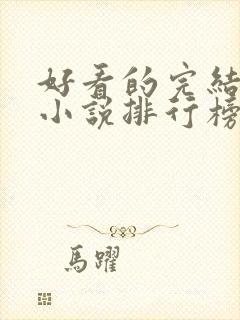 好看的完結
小説排行榜
馬躍